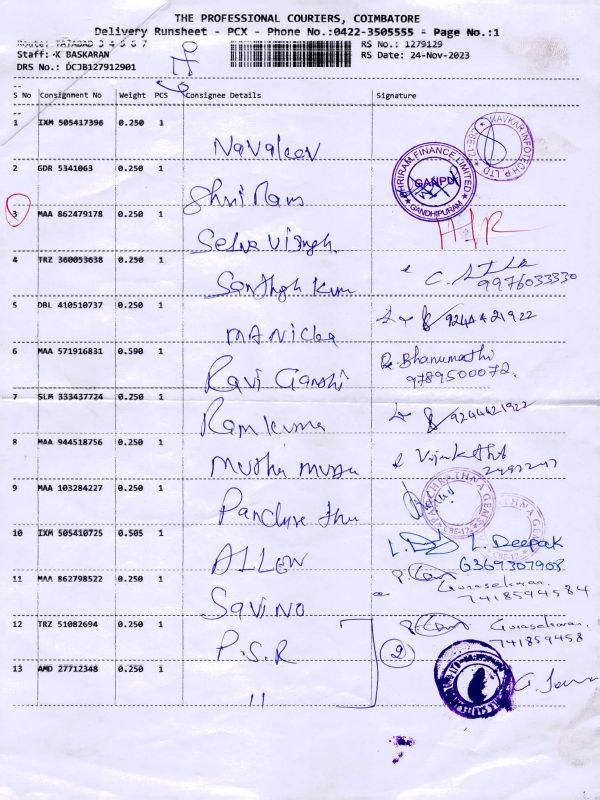 THE PROFESSIONAL COURIERS, COIMBATORE
Delivery Runsheet - PCX - Phone No.:0422-3505555 - Page No.:1
Route: TATABAD 3 4 5 6 7
RS No.: 1279129
Staff: K BASKARAN
RS Date: 24-Nov-2023
DRS No.: DCJB127912901
S No Consignment No Weight PCS Consignee Details Signature
1 IXM 505417396 0.250 1
NAVKAR INFOTECH P. LTD CBE-12
2 GDR 5341063 0.250 1 Shri Ram
SHRIRAM FINANCE LIMITED GANDHIPURAM
3 MAA 862479178 0.250 1
4 TRZ 360053638 0.250 1 Santhosh Kum
9976033330
5 DBL 410510737 0.250 1 MANICKA
9244421922
6 MAA 571916831 0.590 1 Ravi Gandhi
Bhanumathi
9789500072.
7 SLM 333437724 0.250 1 Ramkuma
9244421922
8 MAA 944518756 0.250 1 Muthu
9 MAA 103284227 0.250 1
CBE-12
10 IXM 505410725 0.505 1 ALLEN
L. Deepak
6369307908
11 MAA 862798522 0.250 1 Savino
Gunasekaran.
7418594584
12 TRZ 51082694 0.250 1 P.S.R
2
Gunasekaran.
741859458
13 AMD 27712348 0.250 1 11